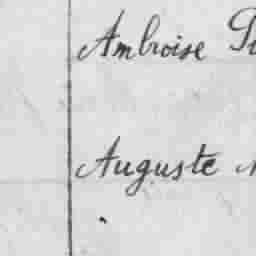 Ambroise
Auguste